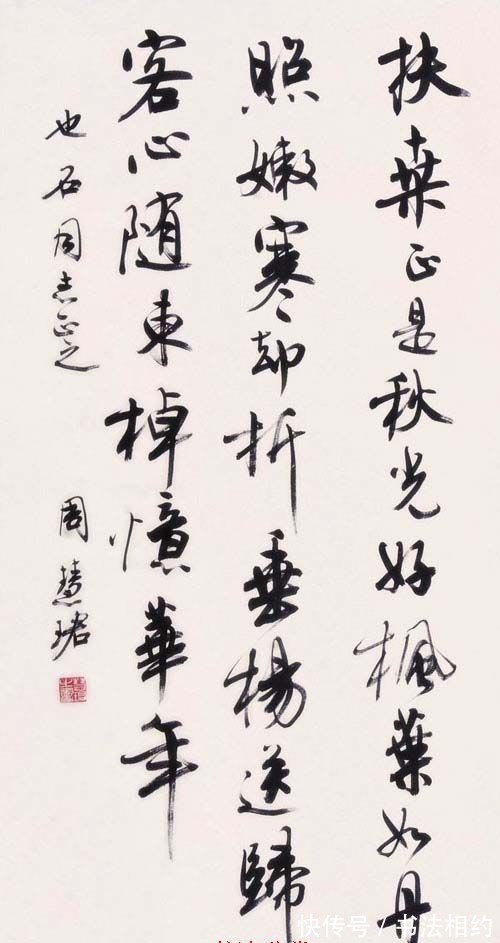 扶桒正是秋光好楓葉如丹
照嫩寒却折垂楊送歸
客心随東棹憶華年
也石同志正之 周慧珺
快传号 / 书法相约